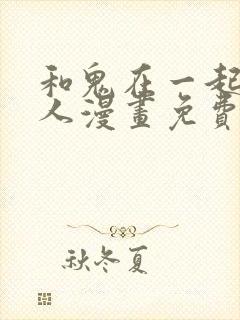 和鬼在一起
人漫畫免費
秋冬夏